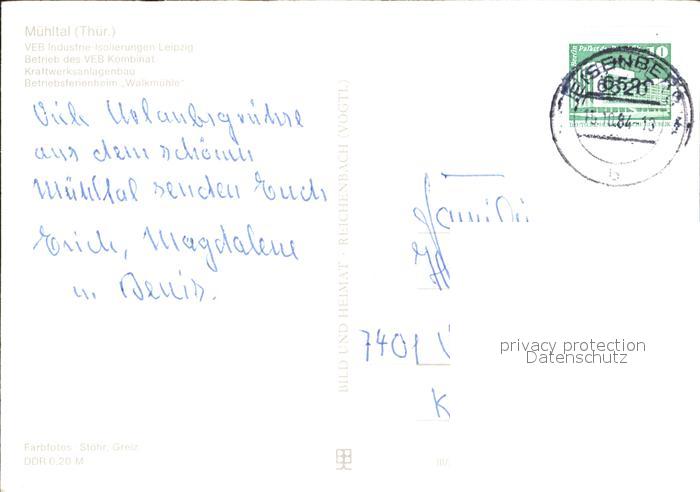 Mühltal (Thür.)
VEB Industrie-Isolierungen Leipzig
Betrieb des VEB Kombinat
Kraftwerksanlagenbau
Betriebsferienheim „Walkmühle"
Viele Urlaubsgrüße
aus dem schönen
Mühltal senden Euch
Erich, Magdalene
u. Denis.
Farbfotos: Stöhr, Greiz
DDR 0,20 M
BILD UND HEIMAT · REICHENBACH (VOGTL)
10
EISENBERG
6520
15.10.84-13
b
Familie
7401
K
privacy protection
Datenschutz